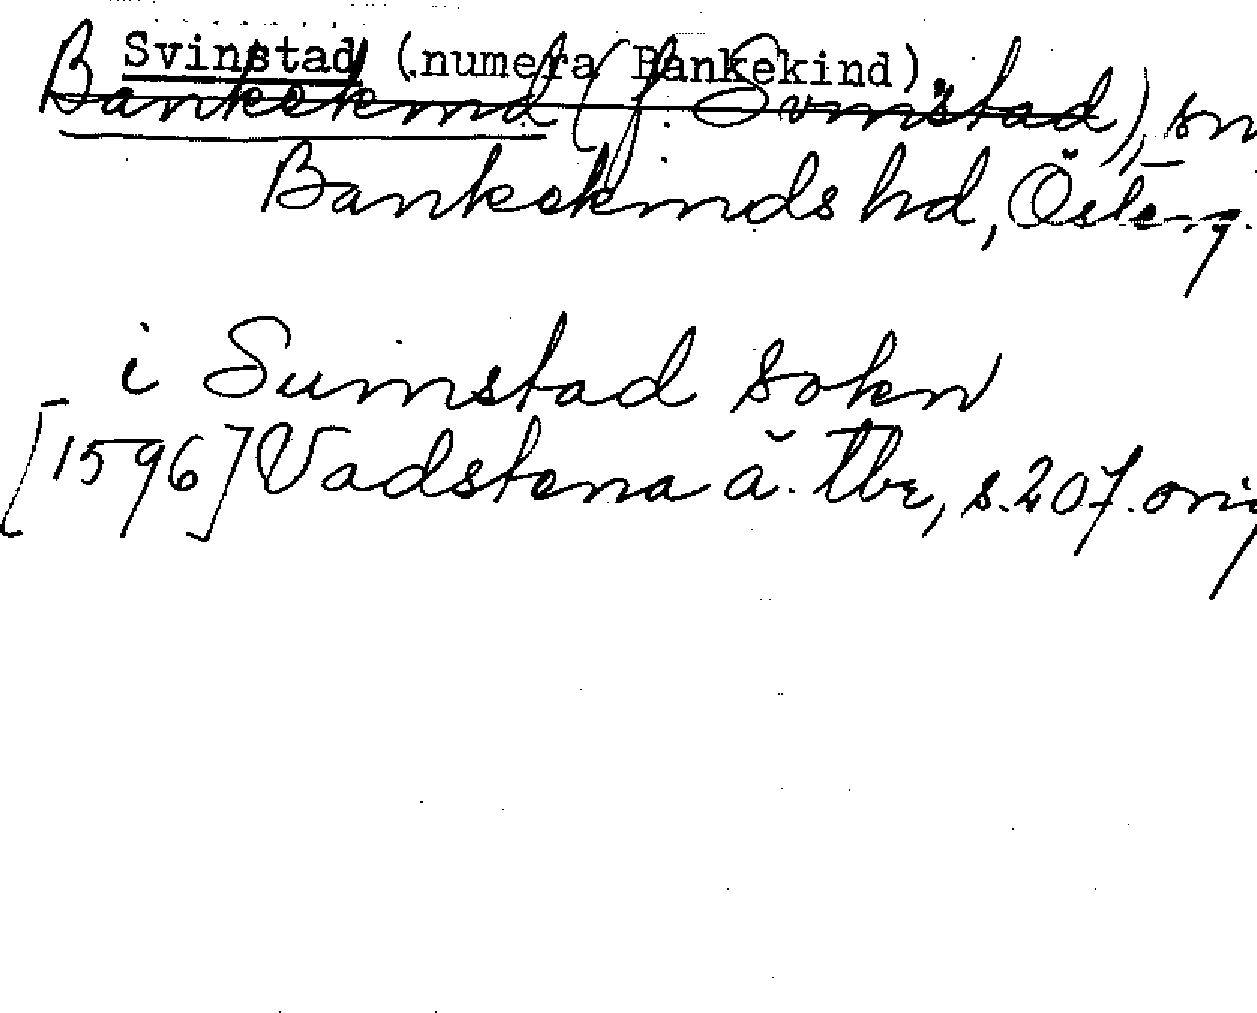 Svinstad (numera Bankekind)
Bankekind (f. Svinstad), sn
Bankekinds hd, Österg.
i Suinstad sokn
[1596] Vadstena å. tbr, s. 207. orig